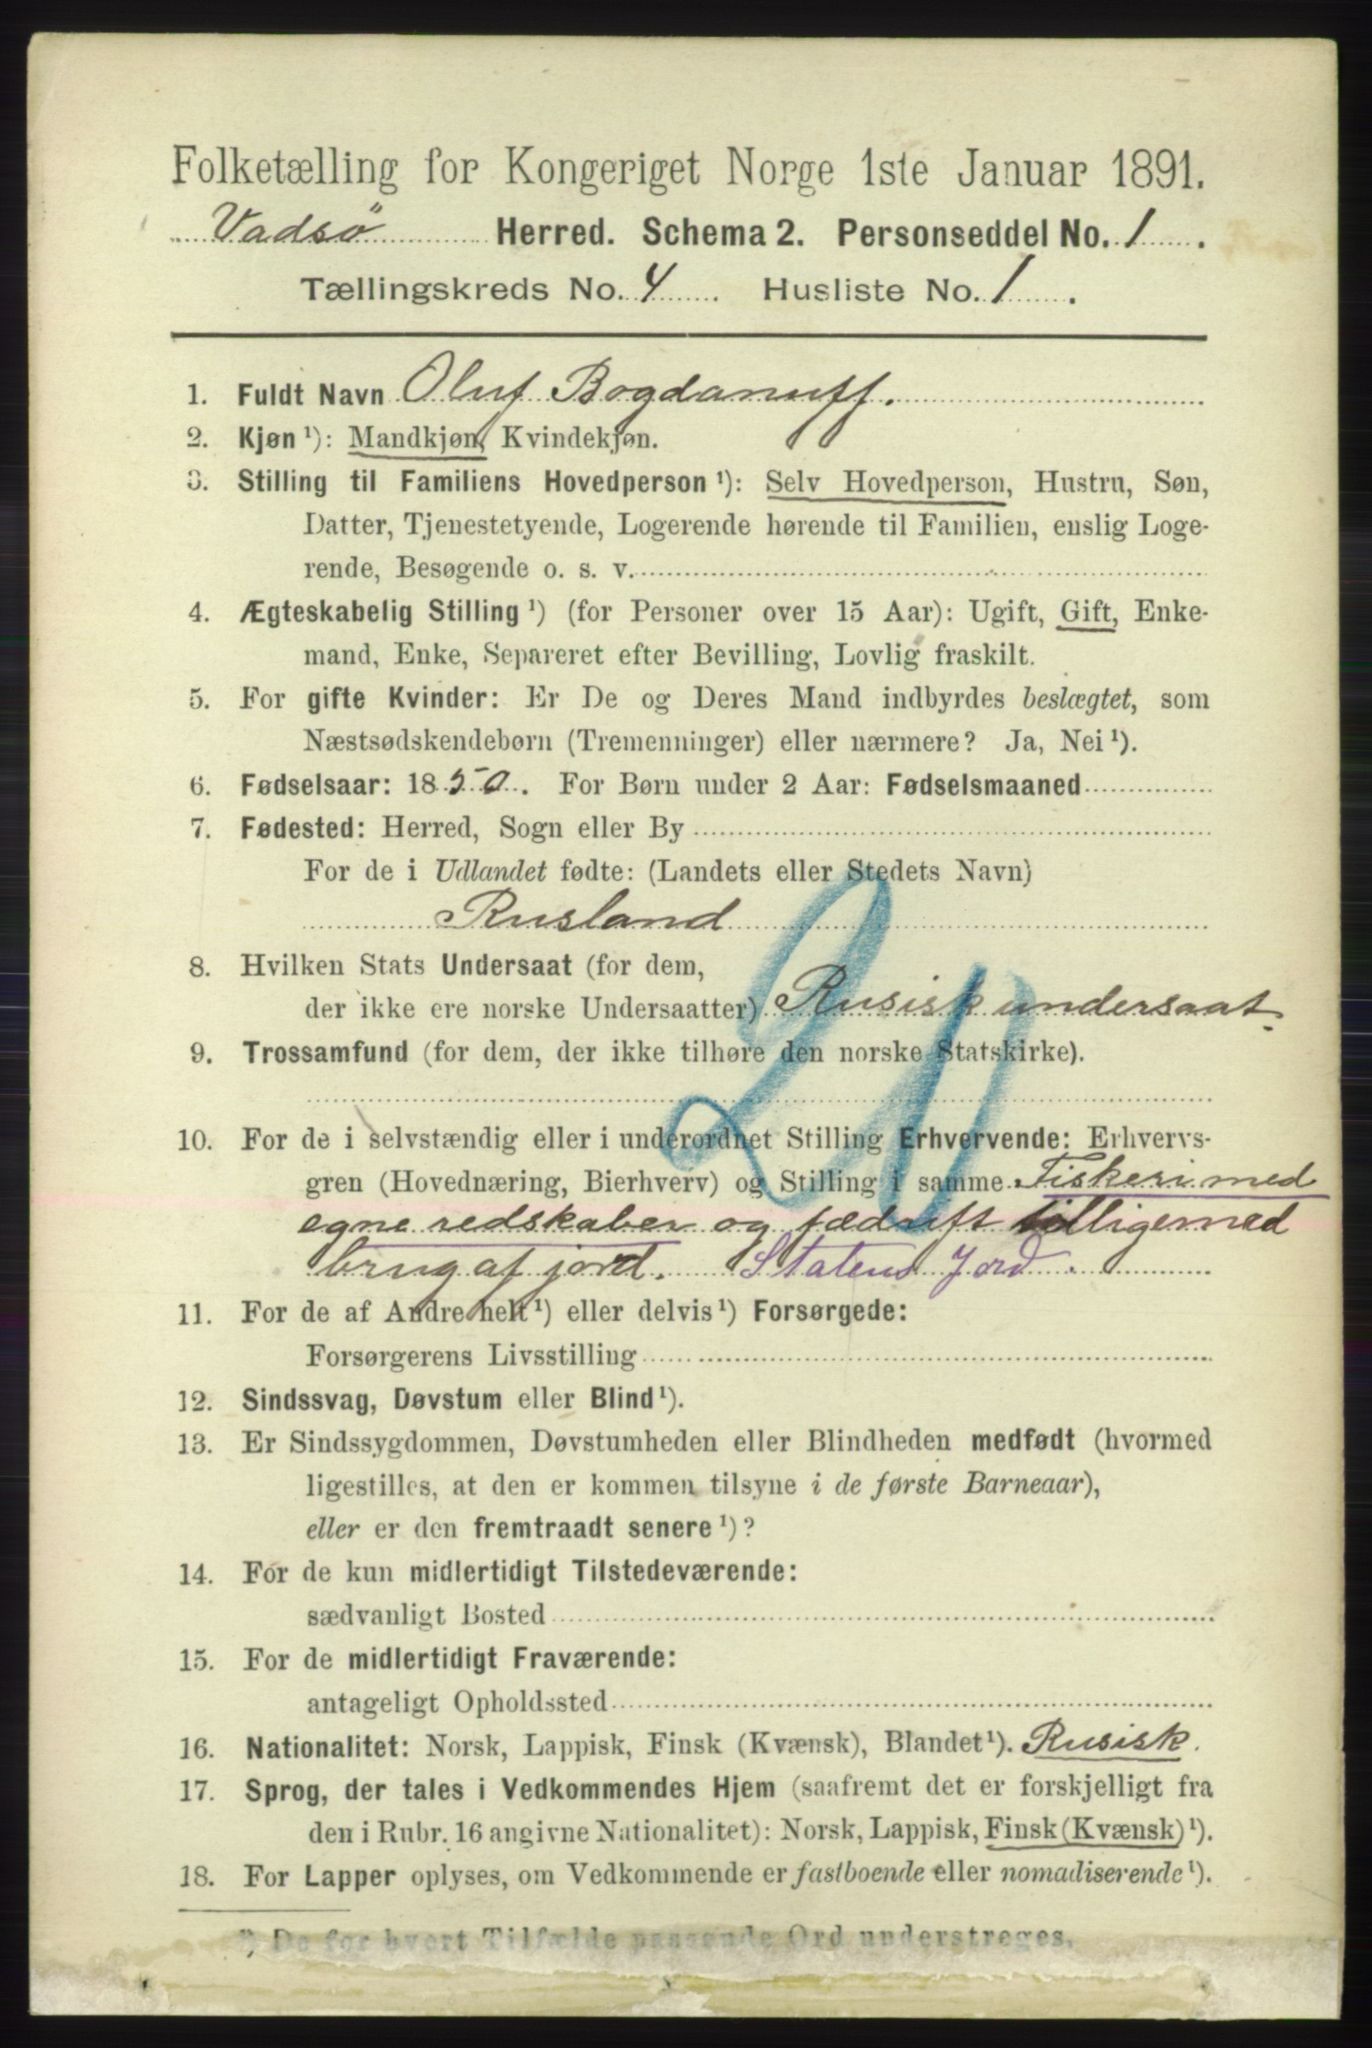 Folketælling for Kongeriget Norge 1ste Januar 1891.
Vadsø Herred. Schema 2. Personseddel No. 1.
Tællingskreds No. 4. Husliste No. 1.
1. Fuldt Navn Oluf Bogdanuff.
2. Kjøn ¹): Mandkjøn, Kvindekjøn.
3. Stilling til Familiens Hovedperson ¹): Selv Hovedperson, Hustru, Søn,
Datter, Tjenestetyende, Logerende hørende til Familien, enslig Loge-
rende, Besøgende o. s. v.
4. Ægteskabelig Stilling ¹) (for Personer over 15 Aar): Ugift, Gift, Enke-
mand, Enke, Separeret efter Bevilling, Lovlig fraskilt.
5. For gifte Kvinder: Er De og Deres Mand indbyrdes beslægtet, som
Næstsødskendebørn (Tremenninger) eller nærmere? Ja, Nei ¹).
6. Fødselsaar: 1850. For Børn under 2 Aar: Fødselsmaaned
7. Fødested: Herred, Sogn eller By
For de i Udlandet fødte: (Landets eller Stedets Navn)
Rusland
8. Hvilken Stats Undersaat (for dem,
der ikke ere norske Undersaatter) Rusisk undersaat.
9. Trossamfund (for dem, der ikke tilhøre den norske Statskirke).
10. For de i selvstændig eller i underordnet Stilling Erhvervende: Erhvervs-
gren (Hovednæring, Bierhverv) og Stilling i samme. Fiskeri med
egne redskaber og fædrift tilligemed
brug af jord. Statens Jord.
11. For de af Andre helt ¹) eller delvis ¹) Forsørgede:
Forsørgerens Livsstilling
12. Sindssvag, Døvstum eller Blind ¹).
13. Er Sindssygdommen, Døvstumheden eller Blindheden medfødt (hvormed
ligestilles, at den er kommen tilsyne i de første Barneaar),
eller er den fremtraadt senere ¹)?
14. For de kun midlertidigt Tilstedeværende:
sædvanligt Bosted
15. For de midlertidigt Fraværende:
antageligt Opholdssted
16. Nationalitet: Norsk, Lappisk, Finsk (Kvænsk), Blandet ¹). Rusisk.
17. Sprog, der tales i Vedkommendes Hjem (saafremt det er forskjelligt fra
den i Rubr. 16 angivne Nationalitet): Norsk, Lappisk, Finsk (Kvænsk) ¹).
18. For Lapper oplyses, om Vedkommende er fastboende eller nomadiserende ¹).
¹) De for hvert Tilfælde passende Ord understreges.